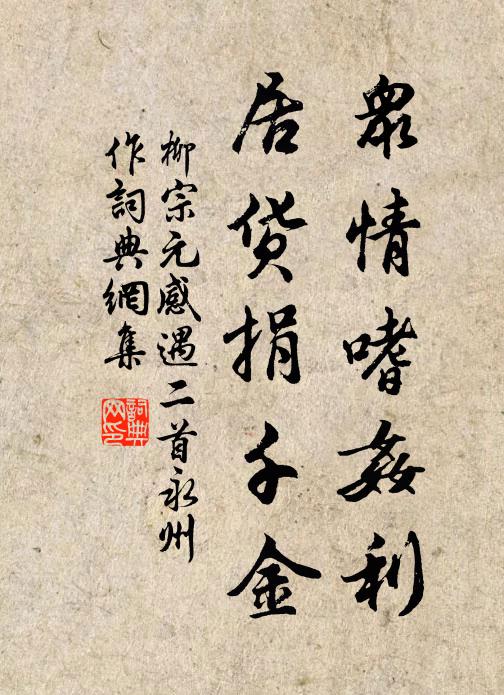 衆情嗜姦利
居货捐千金
柳宗元感遇二首永州
作詞典網集
詞典
网印